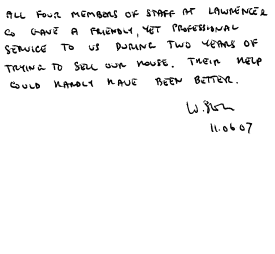 ALL FOUR MEMBERS OF STAFF AT LAWRENCE &
CO GAVE A FRIENDLY, YET PROFESSIONAL
SERVICE TO US DURING TWO YEARS OF
TRYING TO SELL OUR HOUSE. THEIR HELP
COULD HARDLY HAVE BEEN BETTER.
11.06 07